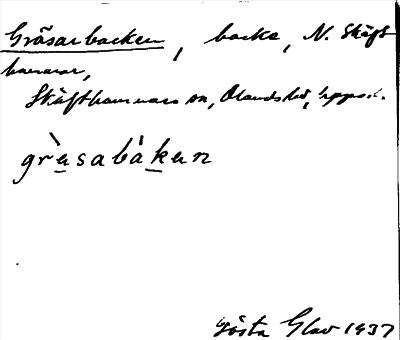 Gräsarbacken, backe, N. Skäft
hammar,
Skäfthammars sn, Olands hd, Uppsal.
grà̱sabàḵen
Gösta Glav 1937